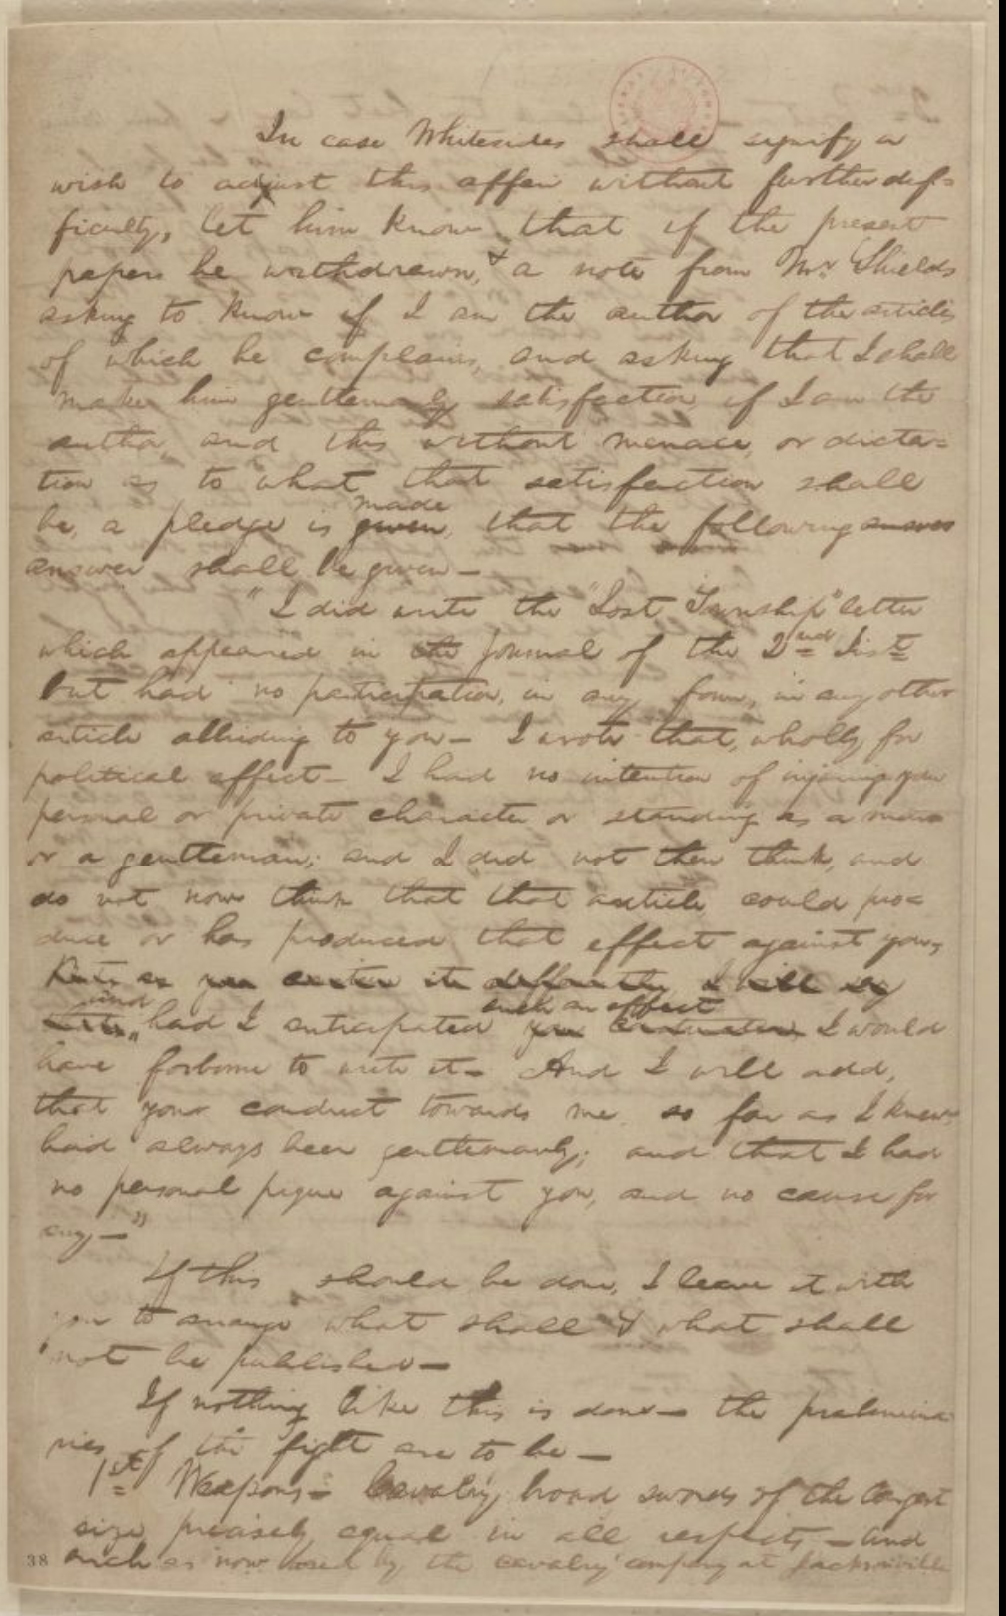 In case Whitesides shall signify a
wish to adjust this affair without further dif=
ficulty, let him know that if the present
papers be withdrawn, & a note from Mr. Shields
asking to know if I am the author of the articles
of which he complains, and asking that I shall
make him gentlemanly satisfaction, if I am the
author, and this without menace, or dicta=
tion as to what that satisfaction shall
made
be, a pledge is given, that the following answer
answer shall be given—
"I did write the "Lost Township" letter
which appeared in the Journal of the 2nd Inst.
but had no participation, in any form, in any other
article alluding to you— I wrote that, wholly for
political effect— I had no intention of injuring your
personal or private character or standing as a man
or a gentleman; and I did not then think, and
do not now think that that article, could pro=
duce or has produced that effect against you,
But as you it differently, I will
and such an effect
had I anticipated you I would
have forborne to write it— And I will add,
that your conduct towards me, so far as I knew,
had always been gentlemanly; and that I had
no personal pique against you, and no cause for
any—"
If this should be done, I leave it with
you to arrange what shall & what shall
not be published—
If nothing like this is done— the prelimina
ries of the fight are to be—
1st Weapons— Cavalry broad swords of the largest
size, precisely equal in all respects— and
such as now used by the cavalry company at Jacksonville
38